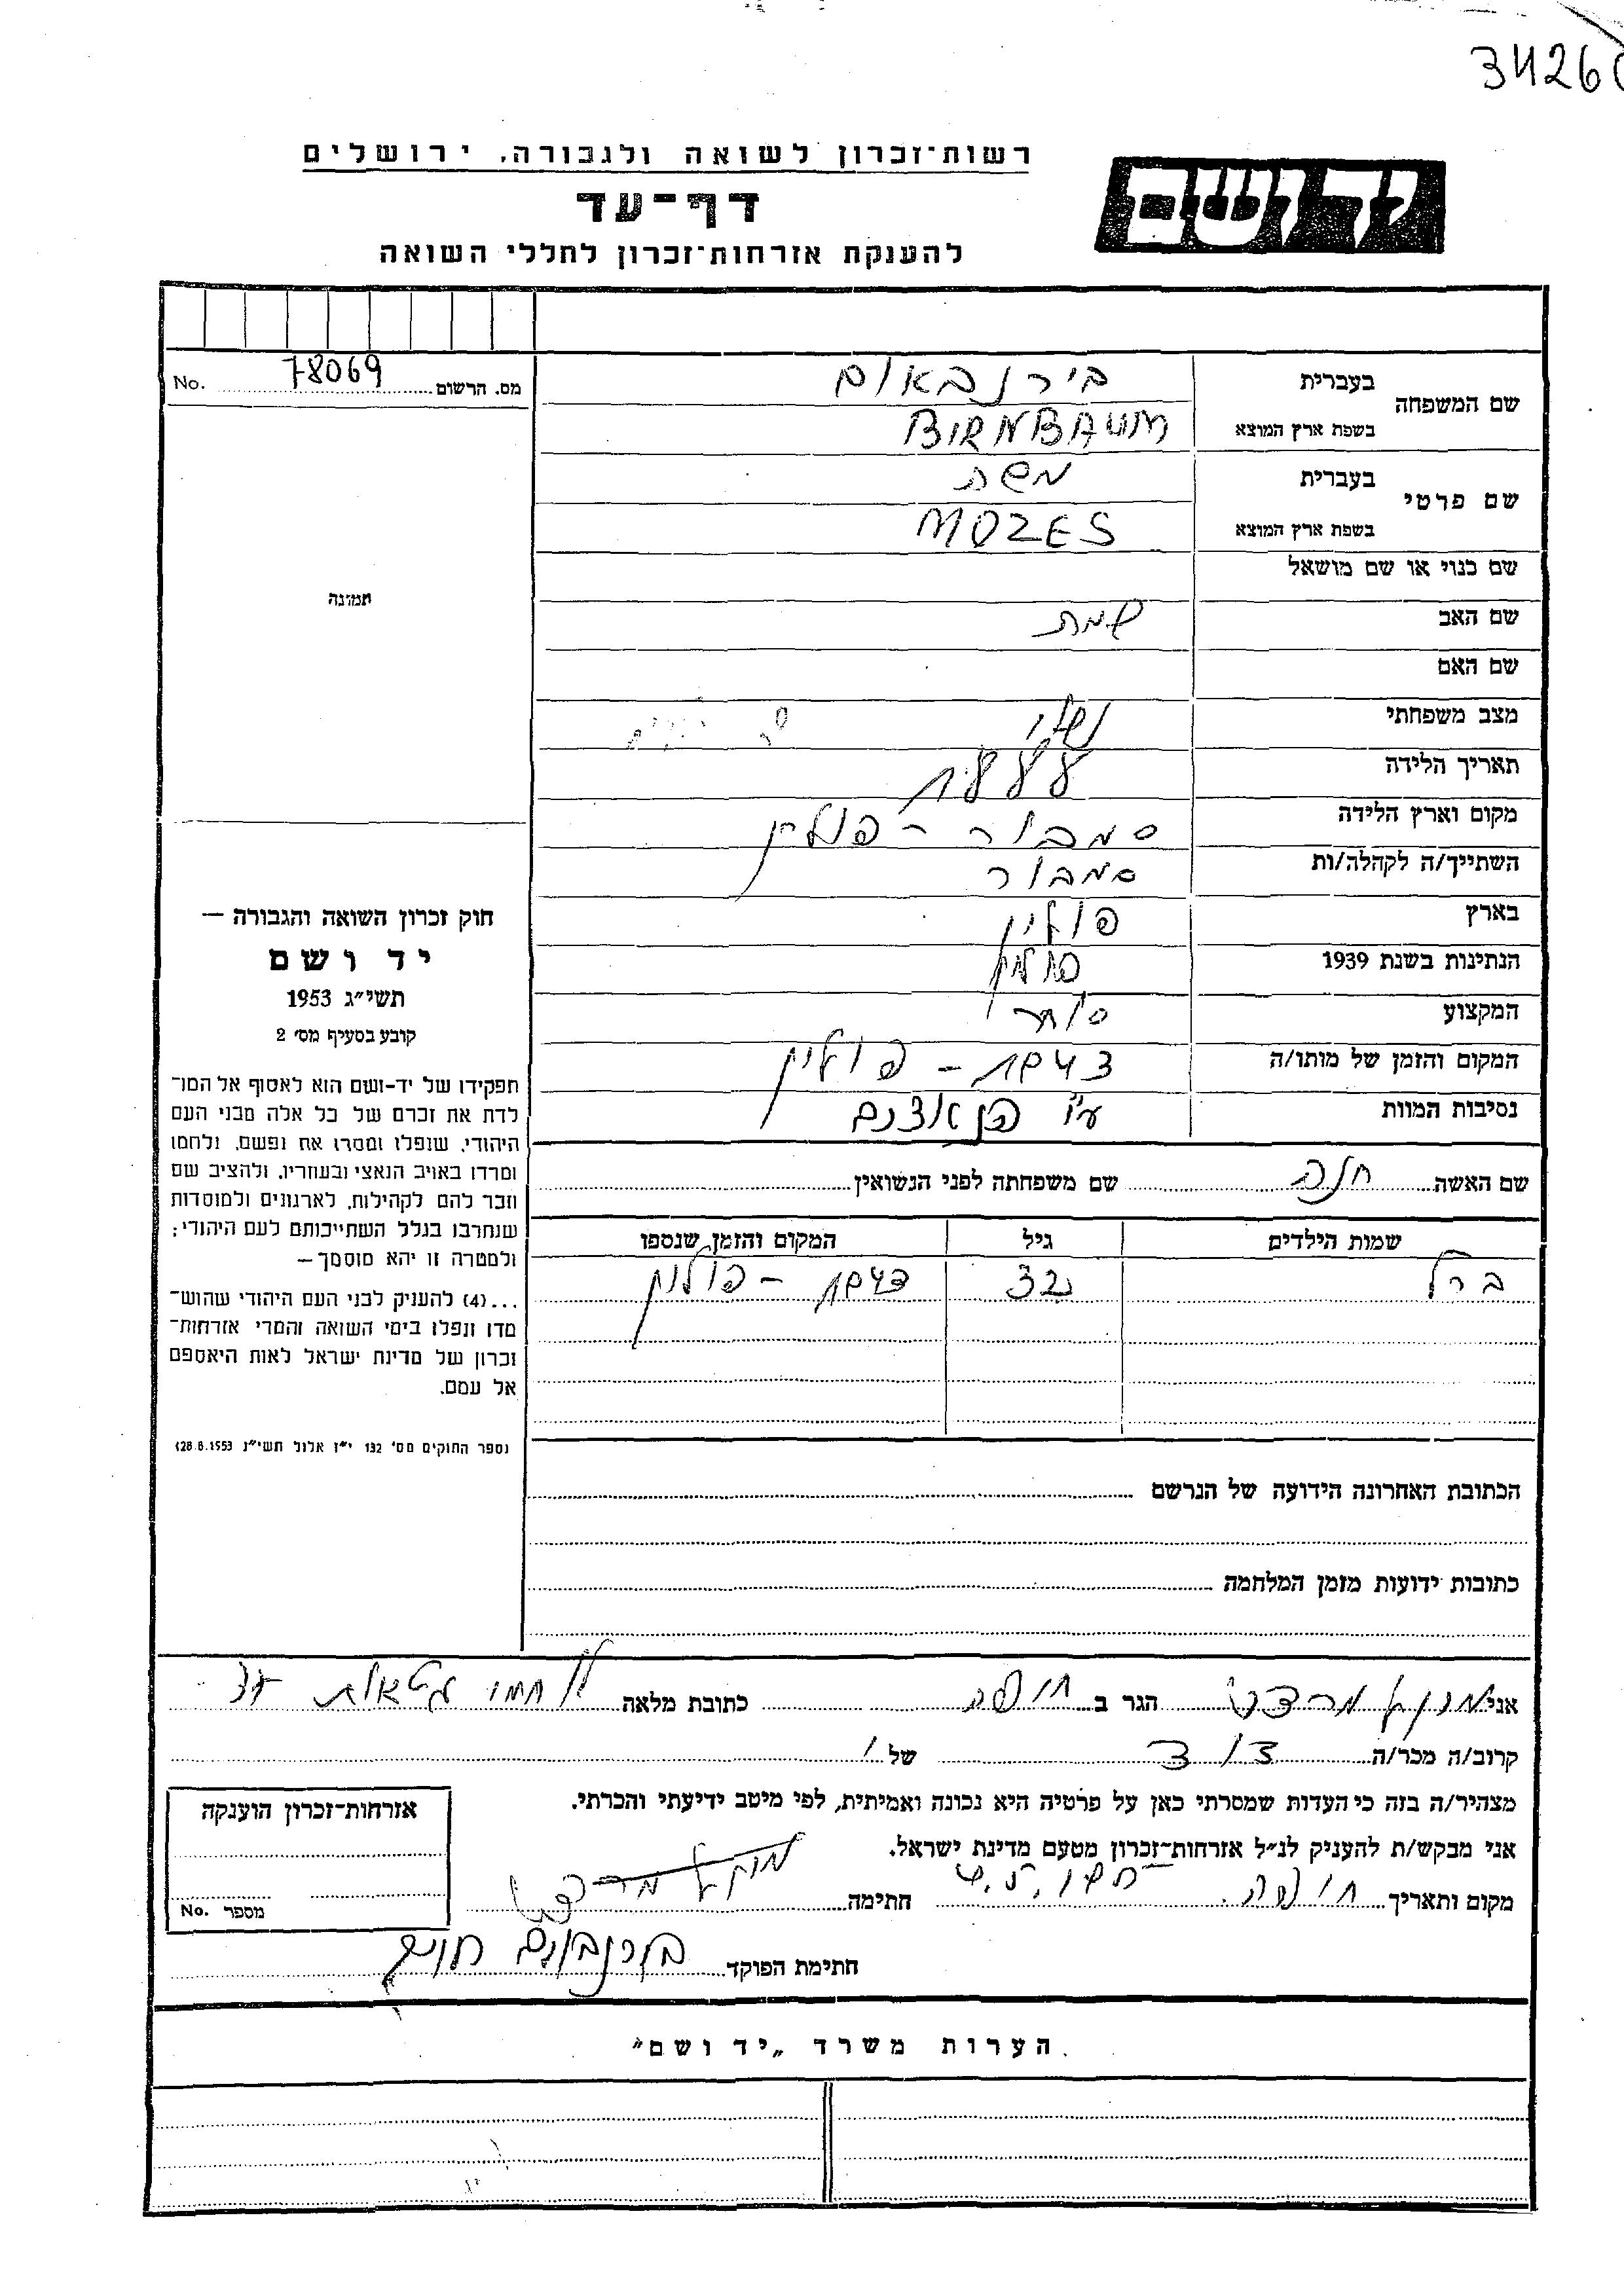 34260
רשות־זכרון לשואה ולגבורה, ירושלים
יד ושם
דף־עד
להענקת אזרחות־זכרון לחללי השואה
מס. הרשום 78069 No.
שם המשפחה
בעברית בירנבאום
בשפת ארץ המוצא BIRNBAUM
שם פרטי
בעברית משה
בשפת ארץ המוצא MOZES
תמונה
שם כנוי או שם מושאל
שם האב שמחה
שם האם
מצב משפחתי נשוי
תאריך הלידה 1888
מקום וארץ הלידה סמבור – פולין
השתייך/ה לקהלה/ות סמבור
בארץ פולין
הנתינות בשנת 1939 פולין
המקצוע סוחר
המקום והזמן של מותו/ה – פולין
נסיבות המוות ע״י הנאצים
שם האשה חנה שם משפחתה לפני הנשואין
שמות הילדים גיל המקום והזמן שנספו
ברל 32 – פולין
חוק זכרון השואה והגבורה —
יד ושם
תשי״ג 1953
קובע בסעיף מס׳ 2
תפקידו של יד-ושם הוא לאסוף אל המו־
לדת את זכרם של כל אלה מבני העם
היהודי, שנפלו ומסרו את נפשם, נלחמו
ומרדו באויב הנאצי ובעוזריו, ולהציב שם
וזכר להם לקהילות, לארגונים ולמוסדות
שנחרבו בגלל השתייכותם לעם היהודי;
ולמטרה זו יהא מוסמך—
...(4) להעניק לבני העם היהודי שהוש־
מדו ונפלו בימי השואה והמרי אזרחות־
זכרון של מדינת ישראל לאות היאספם
אל עמם.
(ספר החוקים מס׳ 132 י״ז אלול תשי״ג 28.8.1953)
הכתובת האחרונה הידועה של הנרשם
כתובות ידועות מזמן המלחמה
אני מרדכי הגר ב חיפה כתובת מלאה לוחמי גטאות
קרוב/ה מכר/ה דוד של
מצהיר/ה בזה כי העדות שמסרתי כאן על פרטיה היא נכונה ואמיתית, לפי מיטב ידיעתי והכרתי.
אני מבקש/ת להעניק לנ״ל אזרחות־זכרון מטעם מדינת ישראל.
מקום ותאריך חיפה חתימה מרדכי
חתימת הפוקד בירנבוים
אזרחות־זכרון הוענקה
מספר No.
הערות משרד „יד ושם”